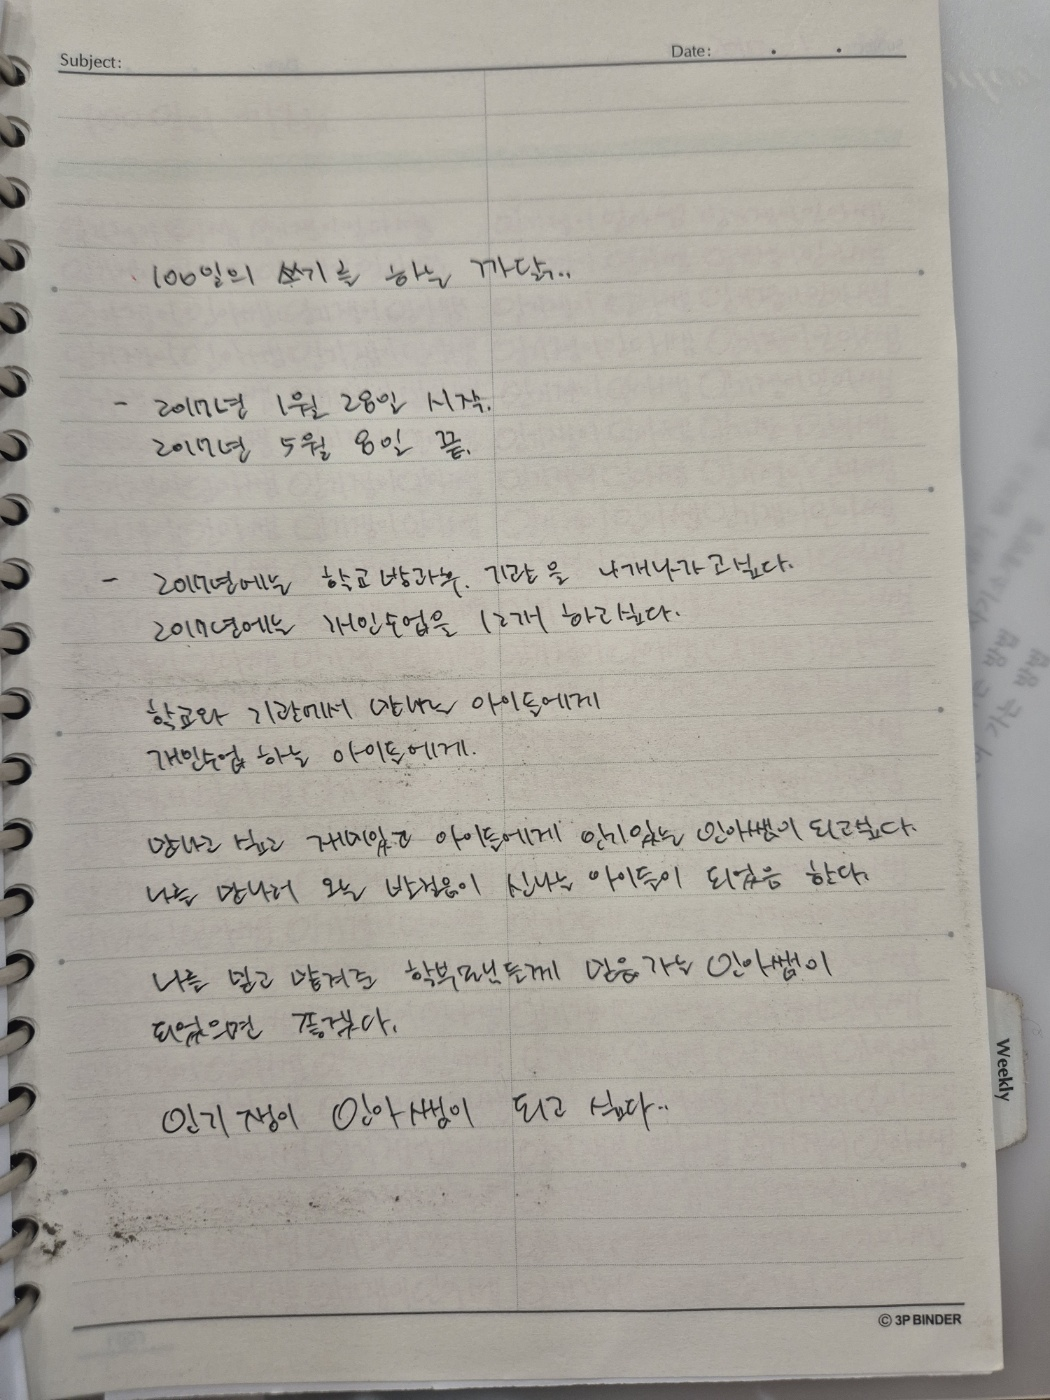 Subject:
Date: . .
100일의 쓰기를 하는 까닭..
- 2017년 1월 28일 시작.
2017년 5월 8일 끝.
- 2017년에는 학교방과후. 기관을 4개나가고싶다.
2017년에는 개인수업을 12개 하고싶다.
학교와 기관에서 만나는 아이들에게
개인수업 하는 아이들에게.
만나고 싶고 재미있고 아이들에게 인기있는 인아쌤이 되고싶다.
나를 만나러 오는 발걸음이 신나는 아이들이 되었음 한다.
나를 믿고 맡겨준 학부모님들께 믿음가는 인아쌤이
되었으면 좋겠다.
인기쟁이 인아쌤이 되고 싶다..
Weekly
© 3P BINDER